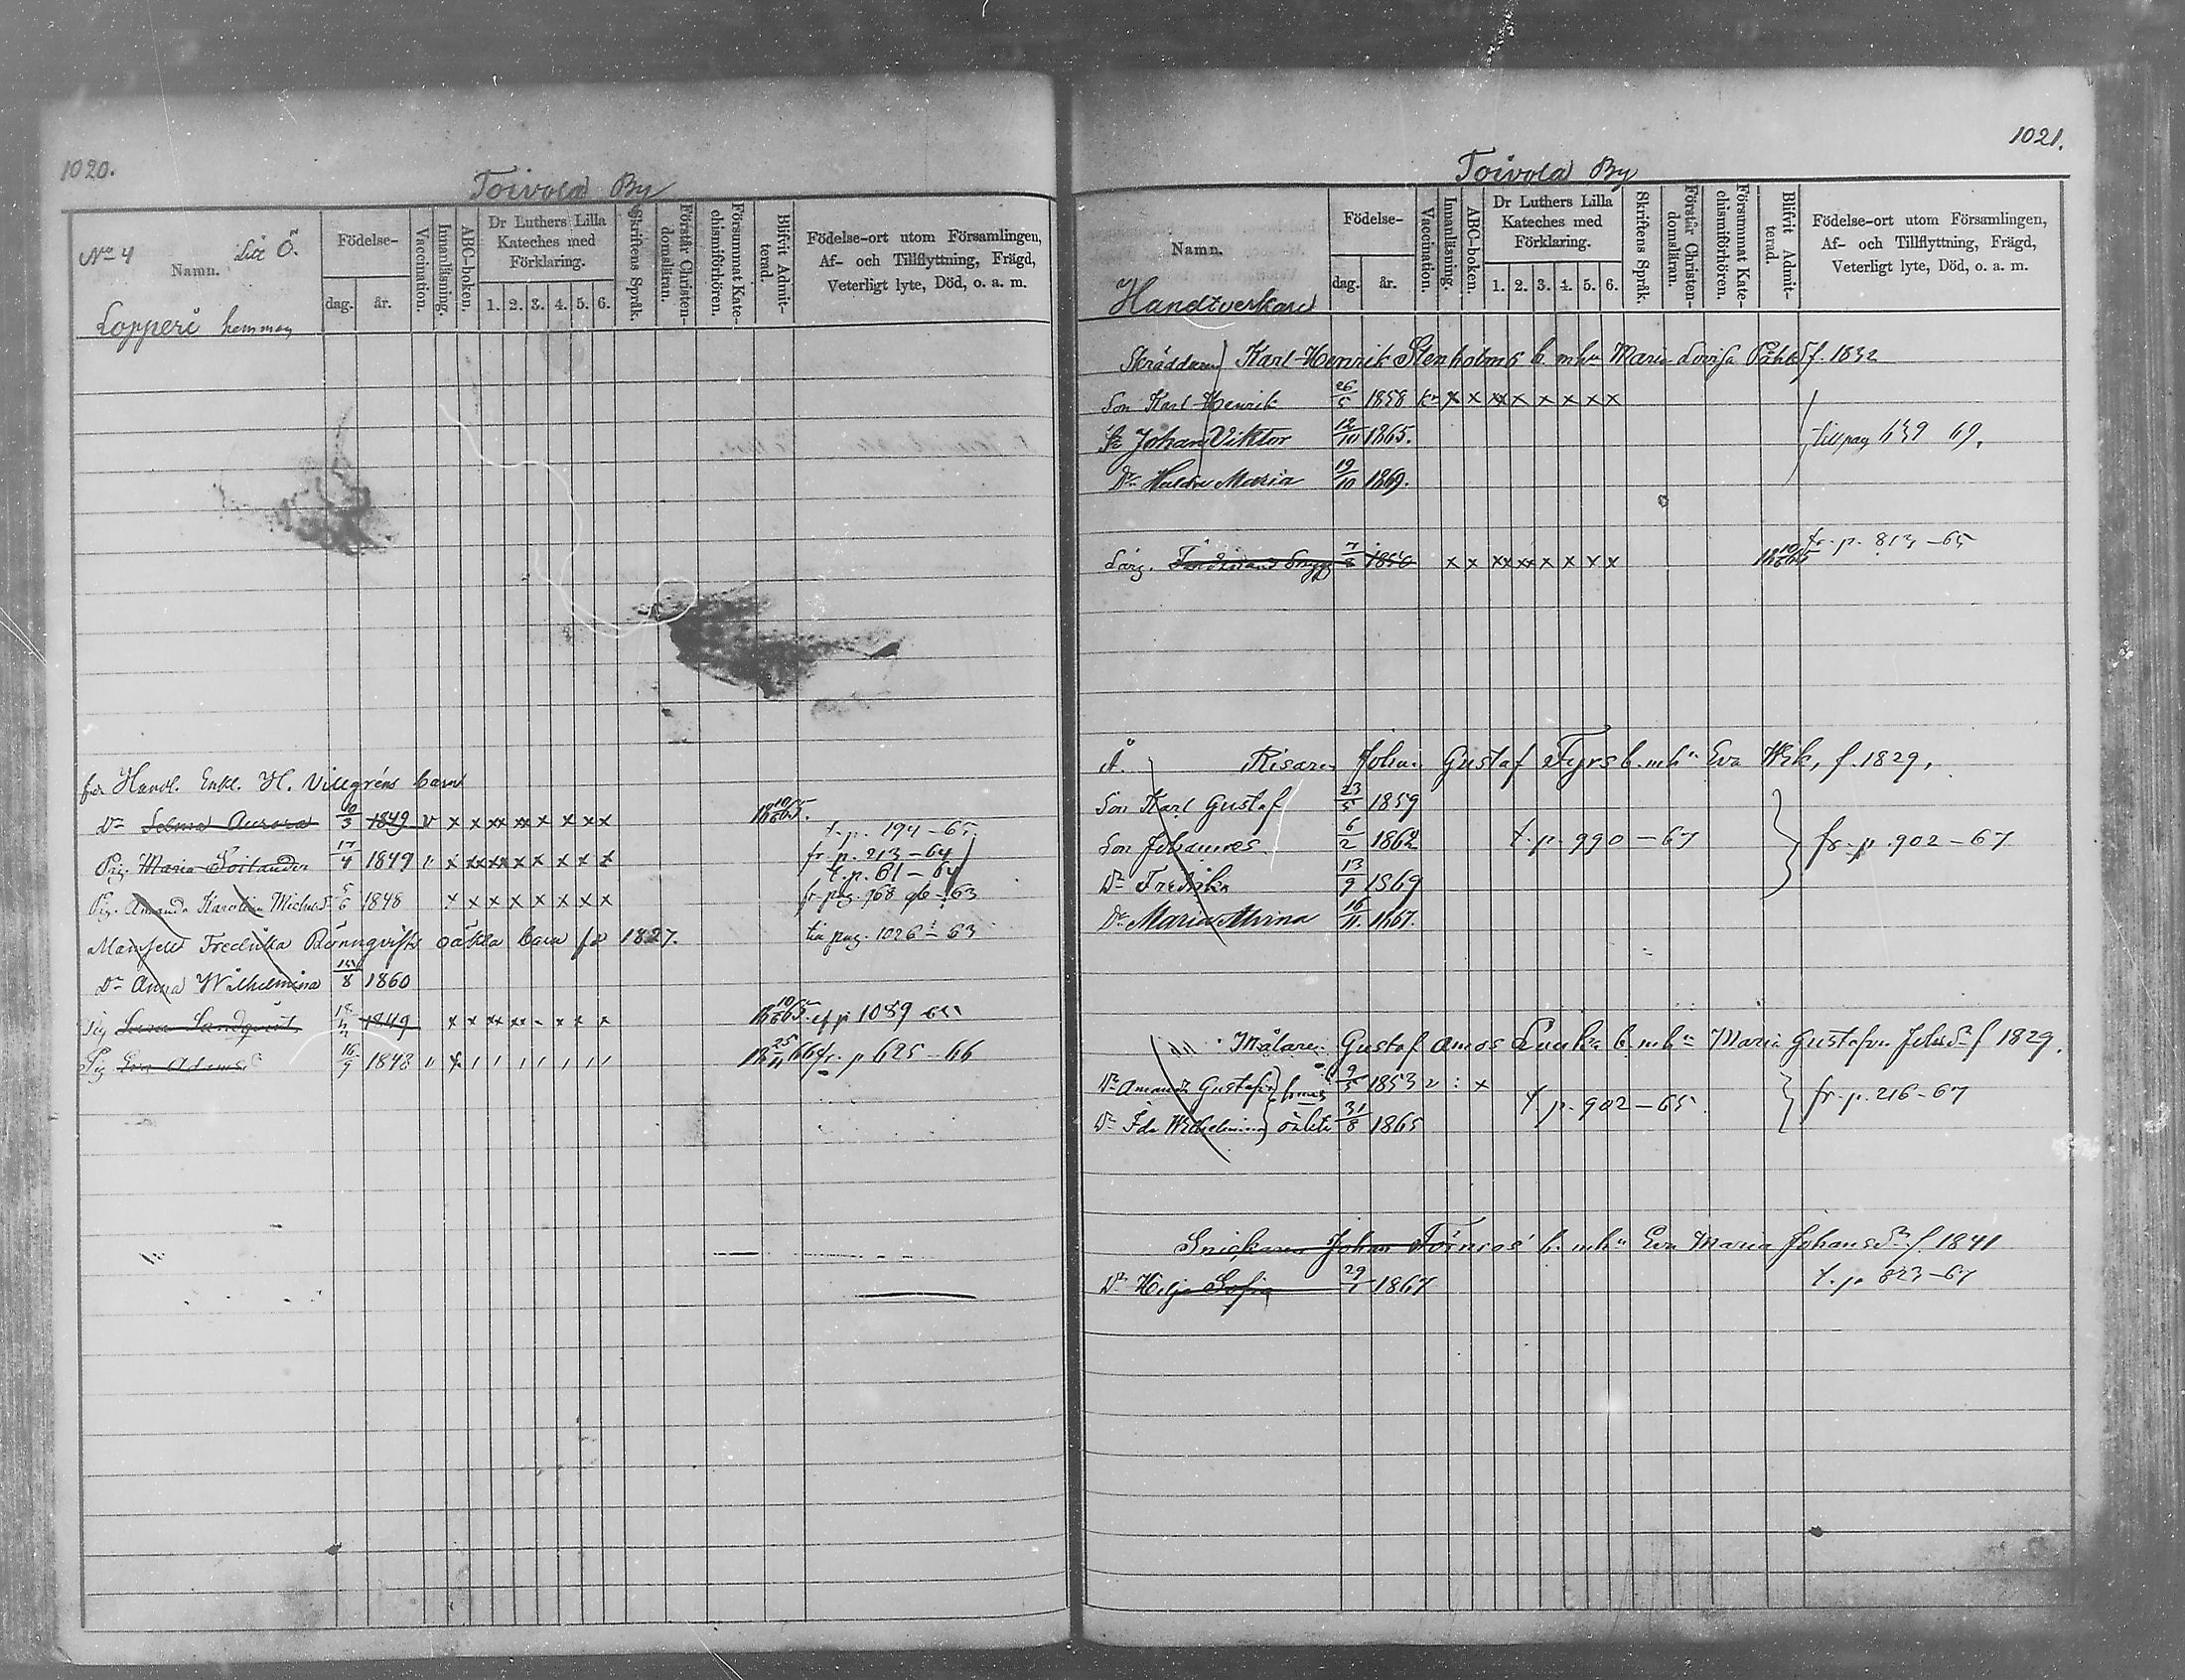 1020.
Toivola By
No 4
Namn.
Litt Ö.
Födelse-
dag.
år.
Vaccination.
Innanläsning.
ABC-boken.
Dr Luthers Lilla Kateches med Förklaring.
1. 2. 3. 4. 5. 6.
Skriftens Språk.
Förstår Christen-domsläran.
Försummat Kate-chismiförhören.
Blifvit Admit-terad.
Födelse-ort utom Församlingen,
Af- och Tillflyttning, Frägd,
Veterligt lyte, Död, o. a. m.
Lopperi hemman
Handl. Enkl. H. Villgréns barn
Dr Selma Aurora 10/3 1849 v x x xx xx x x x x 10/10 1865.
t. p. 194-65
Pig. Maria Soilander 17/4 1849 v x xx xx x x x x x fr p. 213-64
t. p. 61-64
Pig. Amanda Karolina Michelsdr 5/6 1848 x x x x x x x x fr pag. 968 96-63
Mamsell Fredrika Rönnqvists oäkta barn 1827. till pag. 1026-63
Dr Anna Wilhelmina 8 1860
Pig Sandqvist 1849 x x xx xx - x x x 1865 1089
Pig Eva Adamsd 16/9 1848 25/11 66 fr. p 625-66
1021.
Toivola By
Namn.
Födelse-
dag.
år.
Vaccination.
Innanläsning.
ABC-boken.
Dr Luthers Lilla Kateches med Förklaring.
1. 2. 3. 4. 5. 6.
Skriftens Språk.
Förstår Christen-domsläran.
Försummat Kate-chismiförhören.
Blifvit Admit-terad.
Födelse-ort utom Församlingen,
Af- och Tillflyttning, Frägd,
Veterligt lyte, Död, o. a. m.
Handtverkare
Skräddaren Karl Henrik Stenholms b. mhu Maria Lovisa f. 1832
Son Karl Henrik 26/5 1858 x x xx x x x x x
Johan Viktor 12/10 1865. till pag 639 69.
Dr Hulda Maria 19/10 1869.
fr. p. 813-65
Lärg. Ferdinand Snygg 7 1850 x x xx xx x x x x
Ristaren Johan Gustaf Fyrs b. mhu Eva Wik, f. 1829,
Son Karl Gustaf 23/5 1859
Son Johannes 6/2 1862 t. p. 990-67 fr. p. 902-67
Dr Fredrika 13/9 1869
Dr Maria Alvina 16/11 1867.
Målaren Gustaf Amos b. mhu Maria Gustafva Johsdr f 1829.
Dr Amanda Gustafva 9/5 1853 v : x fr. p. 216-67
t. p. 902-65
Dr Ida Wilhelmina oäkta 31/8 1865
Snickaren Johan Törnros' b. mhu Eva Maria Johansdr f. 1841
Dr Hilja Sofia 29/1 1867 t. p. 823-67